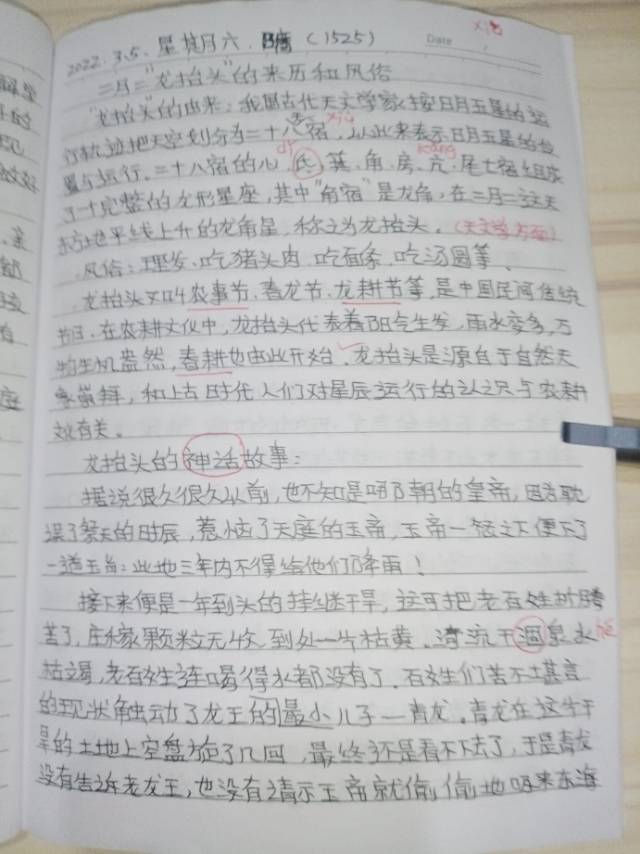 2022.3.5. 星期六. 晴 (1525) Date
二月二"龙抬头"的来历和风俗
"龙抬头"的由来：我国古代天文学家按日月五星的运
行轨迹把天空划分为二十八宿，以此来表示日月五星的位
置与运行。二十八宿的心、氐、箕、角、房、亢、尾七宿组成
了一个完整的龙形星座，其中"角宿"是龙角，在二月二这天
东方地平线上升的龙角星，称之为龙抬头。(天文学方面)
风俗：理发、吃猪头肉、吃面条、吃汤圆等。
龙抬头又叫农事节、春龙节、龙耕节等，是中国民间传统
节日。在农耕文化中，龙抬头代表着阳气生发，雨水变多，万
物生机盎然，春耕也由此开始。龙抬头是源自于自然天
象崇拜，和上古时代人们对星辰运行的认识与农耕
文化有关。
龙抬头的神话故事：
据说很久很久以前，也不知是哪个朝的皇帝，因为耽
误了祭天的时辰，惹恼了天庭的玉帝，玉帝一怒之下便下了
一道玉旨：此地三年内不得给他们降雨！
接下来便是一年到头的持续干旱，这可把老百姓折腾
苦了，庄稼颗粒无收，到处一片枯黄。清流干涸泉水
枯竭，老百姓连喝得水都没有了。百姓们苦不堪言
的现状触动了龙王的最小儿子—青龙。青龙在这片干
旱的土地上空盘旋了几回，最终还是看不下去了，于是青龙
没有告诉老龙王，也没有请示玉帝就偷偷地吸来东海